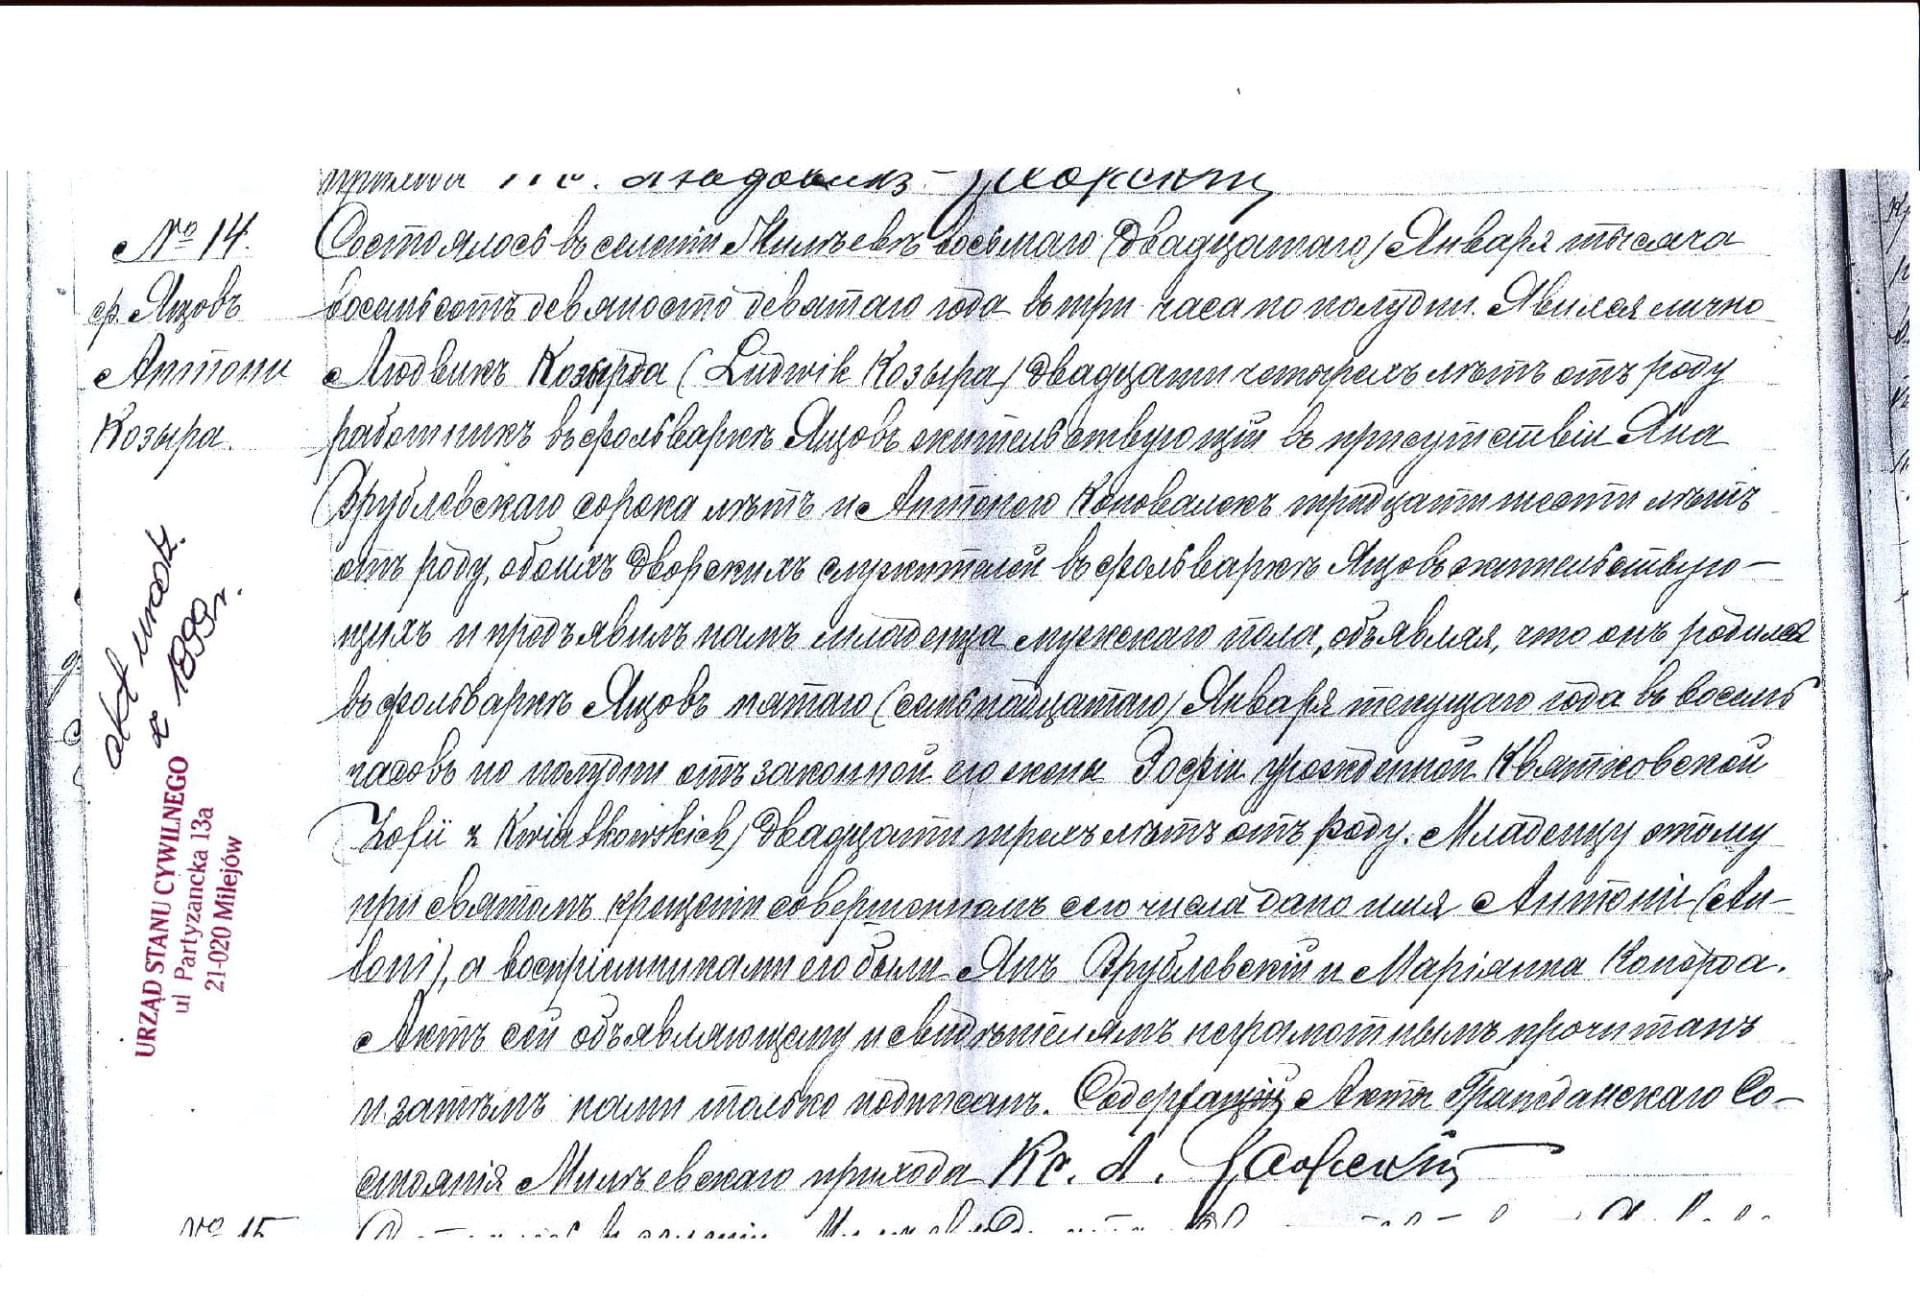 № 14.
ф. Ящовъ
Антони
Козыра.
Состоялось въ селеніи Милѣевѣ восьмаго (двадцатаго) Января тысяча
восемьсотъ девяносто девятаго года въ три часа по полудни. Явился лично
Людвикъ Козыра (Ludwik Козыра) двадцати четырехъ лѣтъ отъ роду
работникъ въ фольваркѣ Ящовъ жительствующій въ присутствіи Яна
Врублевскаго сорока лѣтъ и Антонего Коновалекъ тридцати шести лѣтъ
отъ роду, обоихъ дворскихъ служителей въ фольваркѣ Ящовъ жительствую-
щихъ и предъявилъ намъ младенца мужескаго пола, объявляя, что онъ родился
въ фольваркѣ Ящовъ пятаго (семьнадцатаго) Января текущаго года въ восемь
часовъ по полудни отъ законной его жены Зофіи урожденной Квятковской
(Zofii z Kwiatkowskich) двадцати трехъ лѣтъ отъ роду. Младенцу этому
при святомъ крещеніи совершонномъ сего числа дано имя Антоній (An-
toni), а воспріемниками его были Янъ Врублевскій и Маріянна
Актъ сей объявляющему и свидѣтелямъ неграмотнымъ прочитанъ
и затѣмъ нами только подписанъ. Содержащій Акты Гражданскаго Со-
стоянія Милѣевскаго прихода Кс. А.
№ 15
akt urodz.
z 1899 r.
URZĄD STANU CYWILNEGO
ul Partyzancka 13a
21-020 Milejów